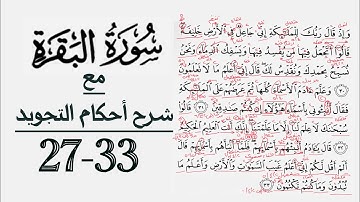 سُورَةُ البَقَرَةِ
مع
شرح أحكام التجويد
27-33
وَإِذْ قَالَ رَبُّكَ لِلْمَلَٰٓئِكَةِ إِنِّي جَاعِلٌ فِي ٱلْأَرْضِ خَلِيفَةً
قَالُوٓا۟ أَتَجْعَلُ فِيهَا مَن يُفْسِدُ فِيهَا وَيَسْفِكُ ٱلدِّمَآءَ وَنَحْنُ
نُسَبِّحُ بِحَمْدِكَ وَنُقَدِّسُ لَكَ قَالَ إِنِّيٓ أَعْلَمُ مَا لَا تَعْلَمُونَ
٣٠ وَعَلَّمَ ءَادَمَ ٱلْأَسْمَآءَ كُلَّهَا ثُمَّ عَرَضَهُمْ عَلَى ٱلْمَلَٰٓئِكَةِ
فَقَالَ أَنۢبِـُٔونِي بِأَسْمَآءِ هَٰٓؤُلَآءِ إِن كُنتُمْ صَٰدِقِينَ ٣١ قَالُوا۟
سُبْحَٰنَكَ لَا عِلْمَ لَنَآ إِلَّا مَا عَلَّمْتَنَآ إِنَّكَ أَنتَ ٱلْعَلِيمُ ٱلْحَكِيمُ
٣٢ قَالَ يَٰٓـَٔادَمُ أَنۢبِئْهُم بِأَسْمَآئِهِمْ فَلَمَّآ أَنۢبَأَهُم بِأَسْمَآئِهِمْ قَالَ
أَلَمْ أَقُل لَّكُمْ إِنِّيٓ أَعْلَمُ غَيْبَ ٱلسَّمَٰوَٰتِ وَٱلْأَرْضِ وَأَعْلَمُ مَا
تُبْدُونَ وَمَا كُنتُمْ تَكْتُمُونَ ٣٣